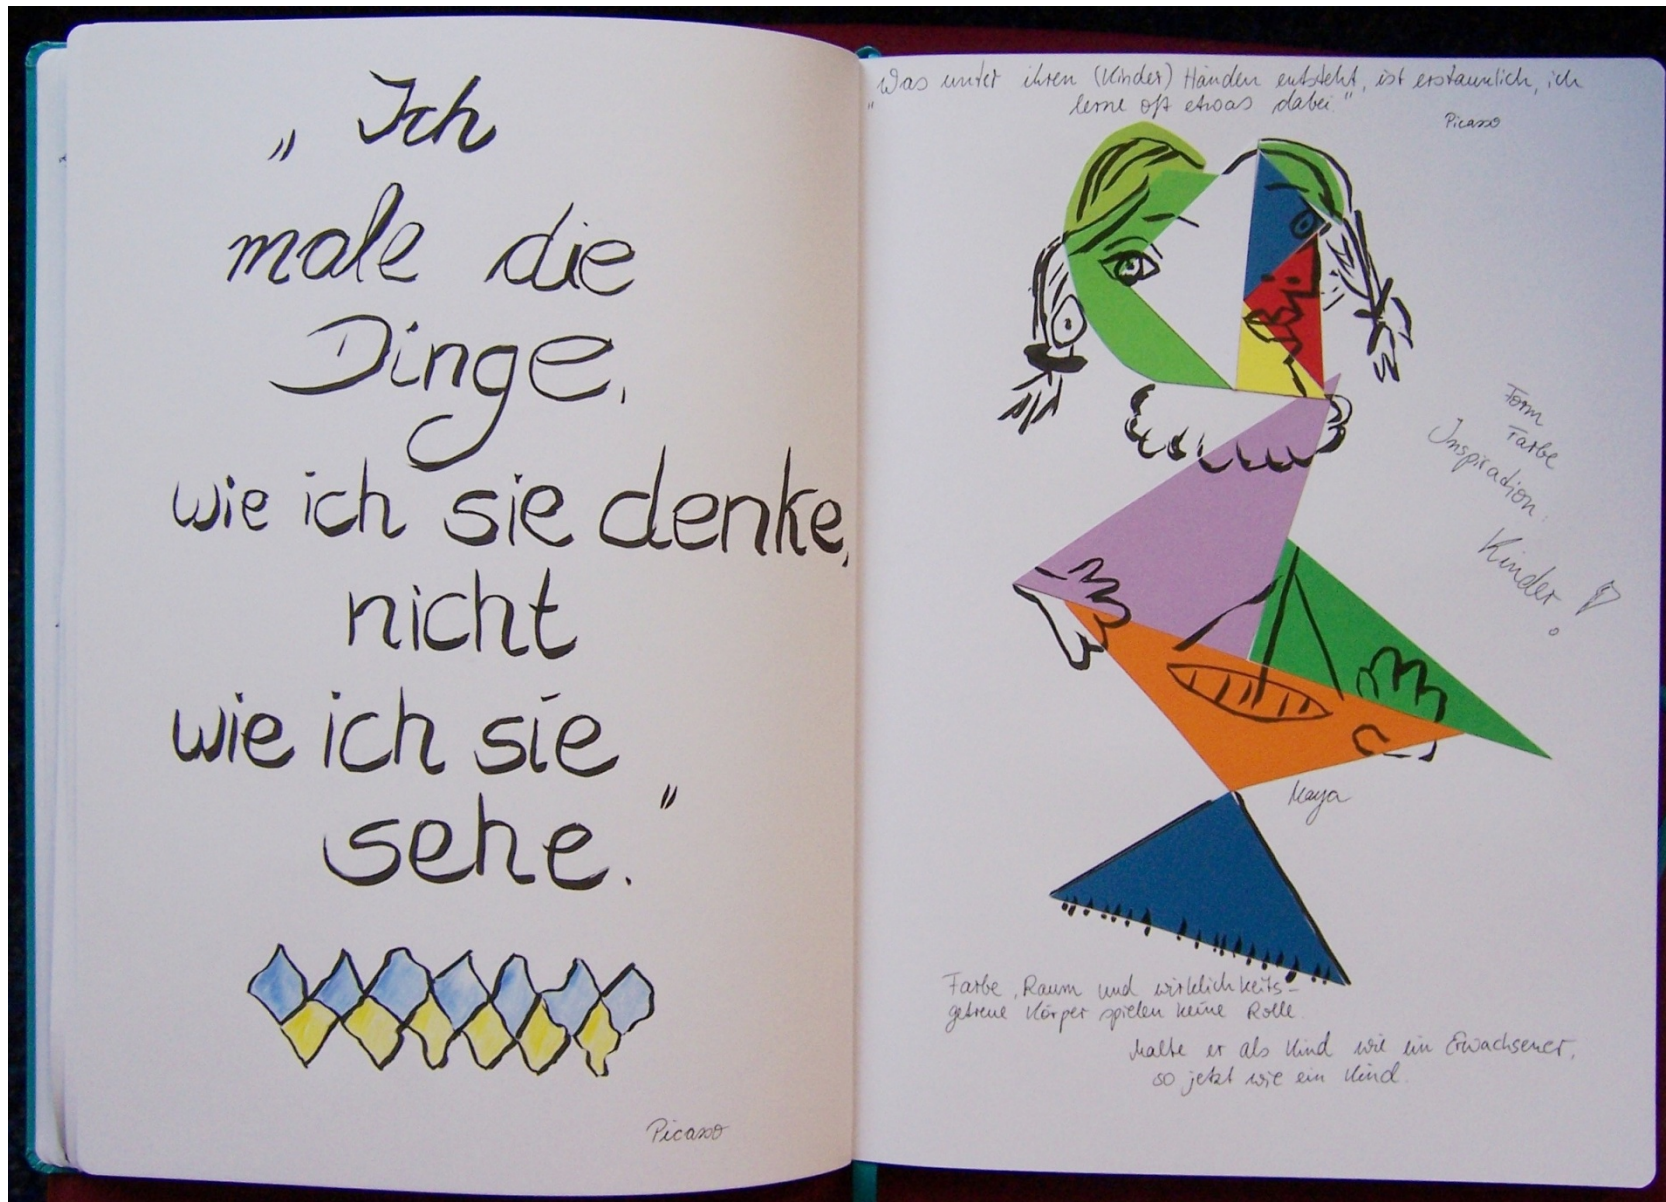 „Ich
male die
Dinge,
wie ich sie denke,
nicht
wie ich sie
sehe."
Picasso
„Was unter ihren (Kinder) Händen entsteht, ist erstaunlich, ich
lerne oft etwas dabei"
Picasso
Form
Farbe
Inspiration.
Kinder!
Maya
Farbe, Raum und wirklichkeits-
getreue Körper spielen keine Rolle.
Malte er als Kind wie ein Erwachsener,
so jetzt wie ein Kind.